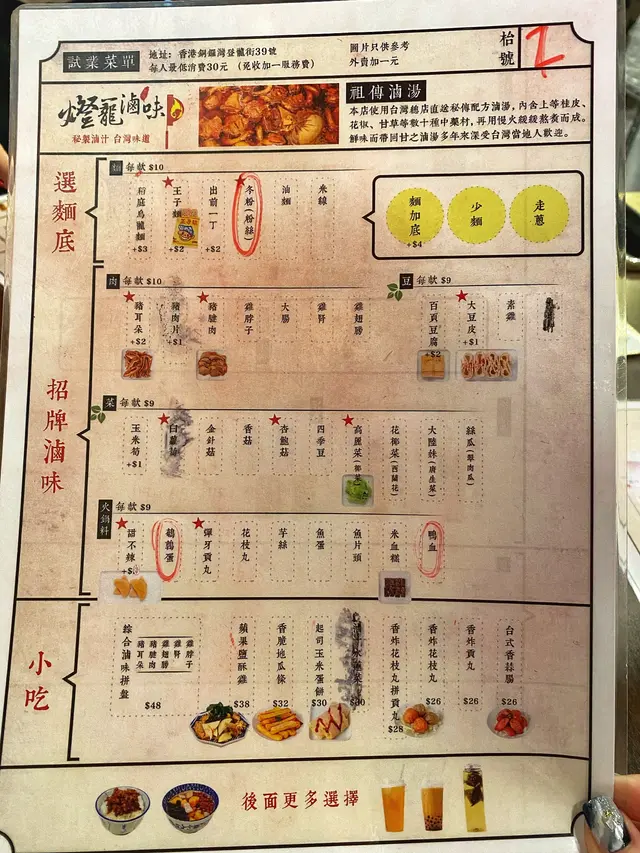 試業菜單
地址：香港銅鑼灣登龍街39號
每人最低消費30元 （免收加一服務費）
圖片只供參考
外賣加一元
枱號
2
燈籠滷味
秘製滷汁 台灣味道
祖傳滷湯
本店使用台灣總店直送秘傳配方滷湯，內含上等桂皮、
花椒、甘草等數十種中藥材，再用慢火緩緩熬煮而成。
鮮味而帶回甘之滷湯多年來深受台灣當地人歡迎。
選麵底
麵 每款 $10
稻庭烏龍麵 +$3
王子麵 +$2
出前一丁 +$2
冬粉(粉絲)
油麵
米線
麵加底 +$4
少麵
走蔥
招牌滷味
肉 每款 $10
豬耳朵 +$2
豬肉片 +$1
豬腱肉
雞脖子
大腸
雞腎
雞翅膀
豆 每款 $9
百頁豆腐 +$2
大豆皮 +$1
素雞
菜 每款 $9
玉米筍 +$1
白蘿蔔
金針菇
香菇
杏鮑菇
四季豆
高麗菜(椰菜)
花椰菜(西蘭花)
大陸妹(唐生菜)
絲瓜(翠肉瓜)
火鍋料 每款 $9
甜不辣
鵪鶉蛋
彈牙貢丸
花枝丸
芋絲
魚蛋
魚片頭
米血糕
鴨血
小吃
綜合滷味拼盤
豬耳朵
豬腱肉
雞翅膀
雞腎
雞脖子
$48
蘋果鹽酥雞 $38
香脆地瓜條 $32
起司玉米蛋餅 $30
香炸花枝丸拼貢丸 $28
香炸花枝丸 $26
香炸貢丸 $26
台式香蒜腸 $26
後面更多選擇